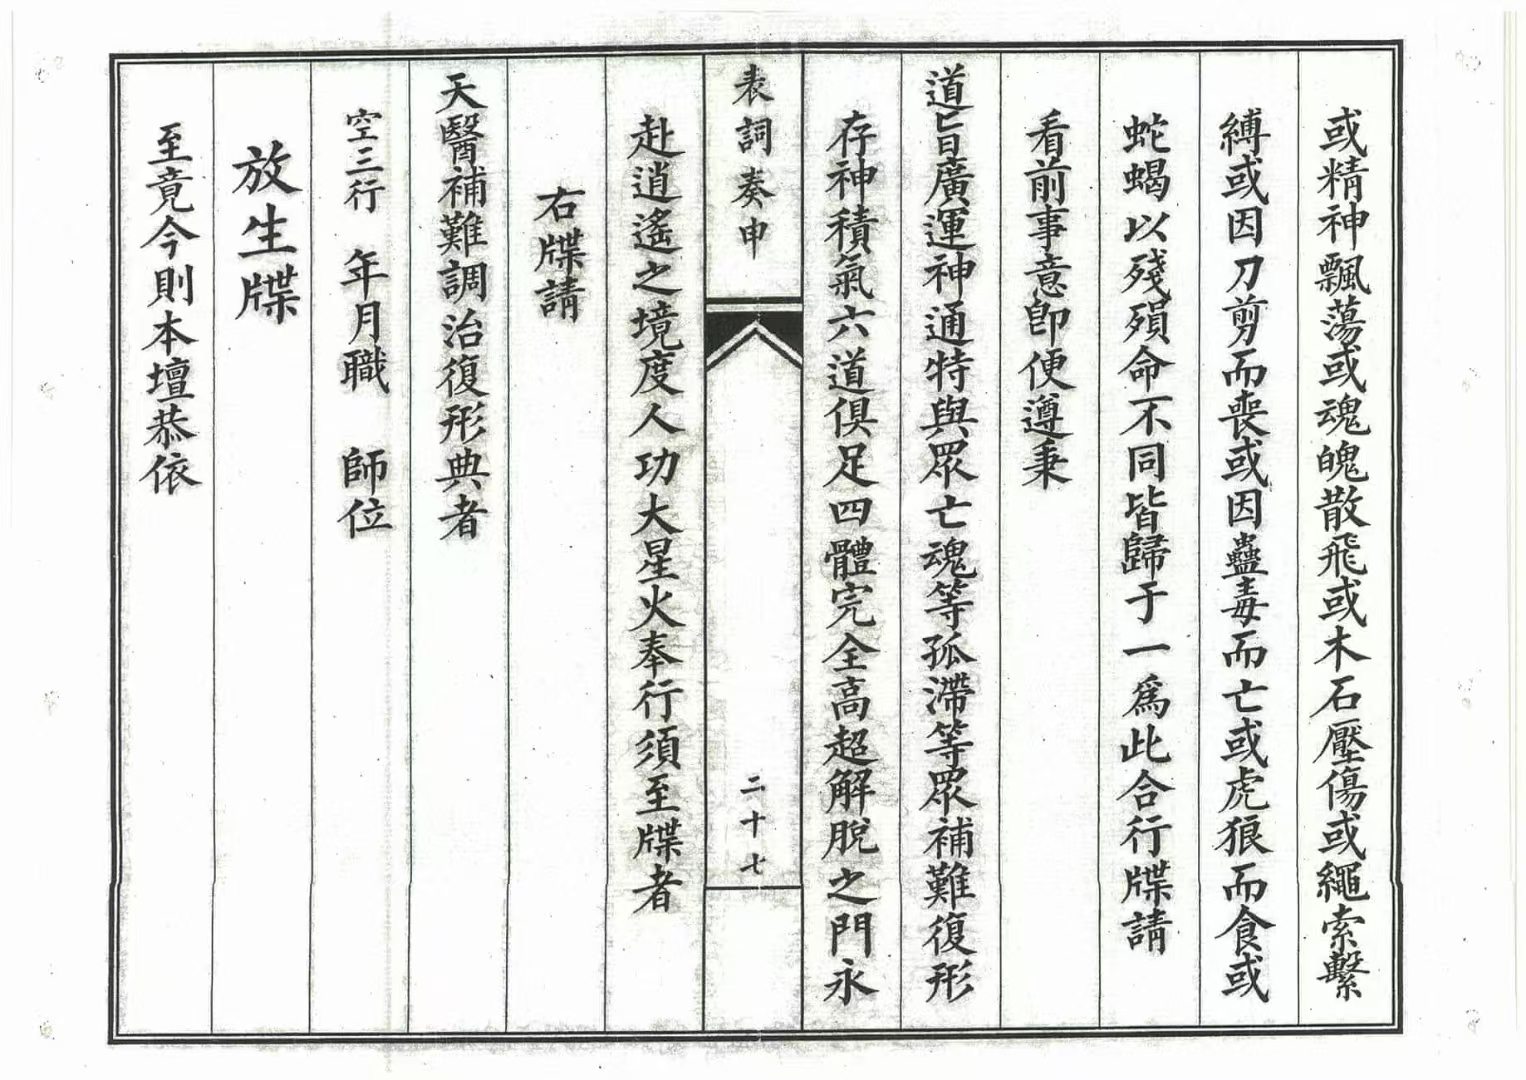 或精神飄蕩或魂魄散飛或木石壓傷或繩索繫
縛或因刀剪而喪或因蠱毒而亡或虎狼而食或
蛇蝎以殘殞命不同皆歸于一爲此合行牒請
看前事意卽便遵秉
道旨廣運神通特與眾亡魂等孤滯等眾補難復形
存神積氣六道俱足四體完全高超解脫之門永
表詞奏申
二十七
赴逍遙之境度人功大星火奉行須至牒者
右牒請
天醫補難調治復形典者
空三行 年月職 師位
放生牒
至竟今則本壇恭依